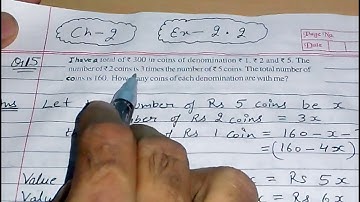 Ch-2
Ex-2.2
Page No.
Date
Q.15
I have a total of ₹ 300 in coins of denomination ₹ 1, ₹ 2 and ₹ 5. The
number of ₹ 2 coins is 3 times the number of ₹ 5 coins. The total number of
coins is 160. How many coins of each denomination are with me?
Let number of Rs 5 coins be x
number of Rs 2 coins = 3x
of Rs 1 coin = 160-x-
=(160-4x)
Value Rs 5x
Value Rs 6x